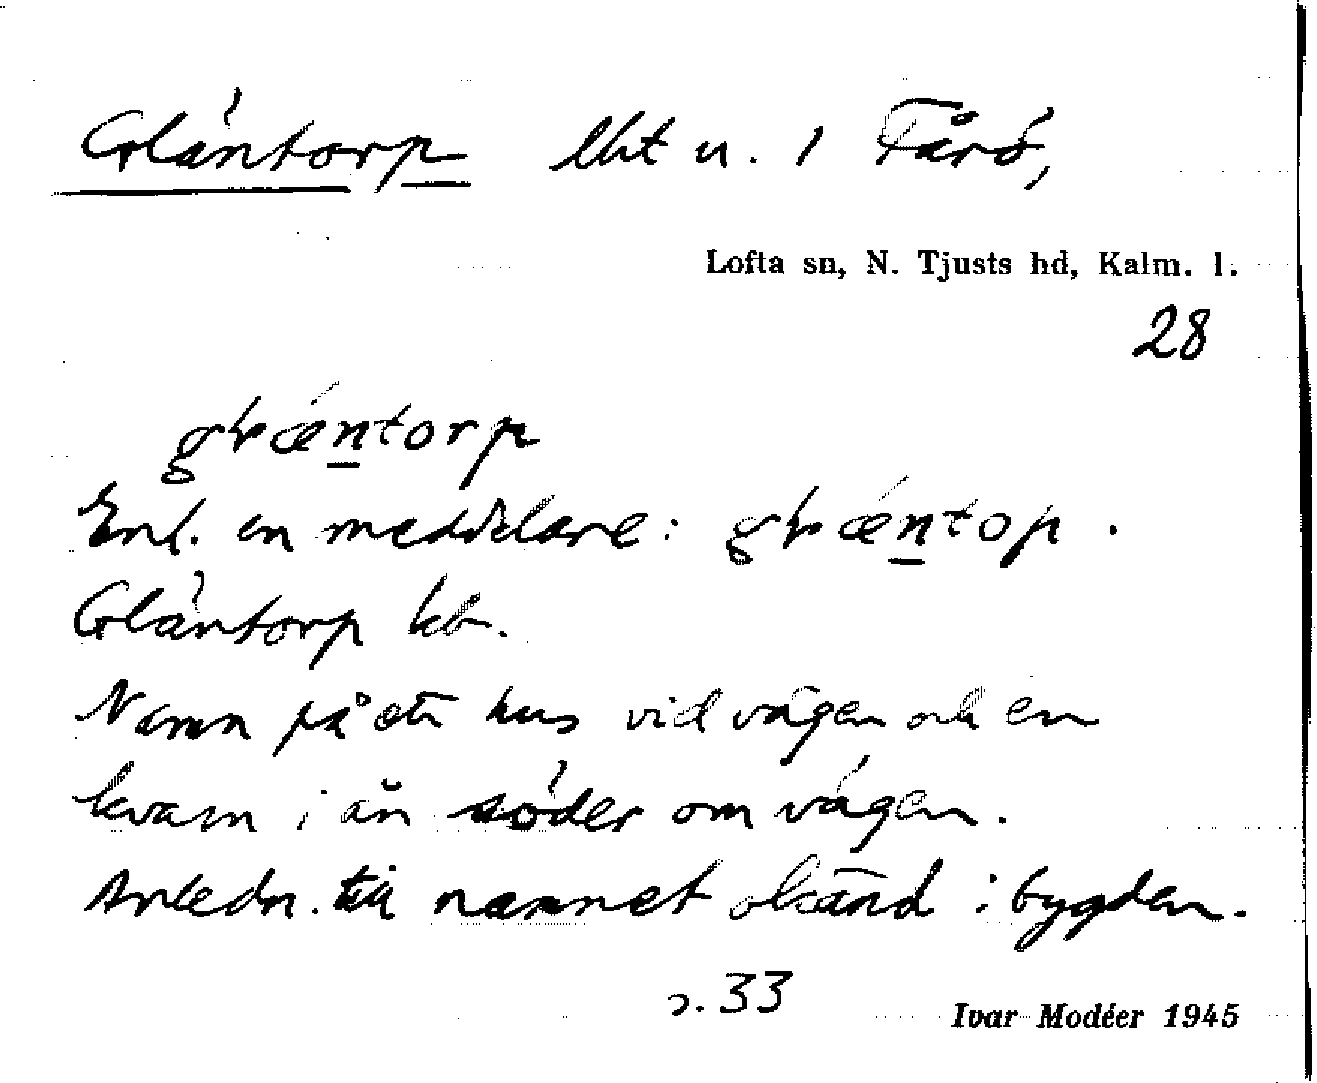 Gläntorp lht u. 1 Fårö,
Lofta sn, N. Tjusts hd, Kalm. l.
28
gläntorp
Enl. en meddelare: gläntop.
Gläntorp kb.
Namn på ett hus vid vägen och en
kvarn i ån söder om vägen.
Anledn. till namnet okänd i bygden.
s. 33
Ivar Modéer 1945